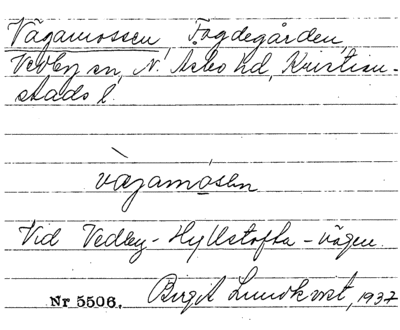 Vägamossen, Fogdegården,
Vedby sn, N. Åsbo hd, Kristian-
stads l.
vàgamósen
Vid Vedby - Hyllstofta - vägen.
Nr 5506. Birgit Lundkvist, 1937